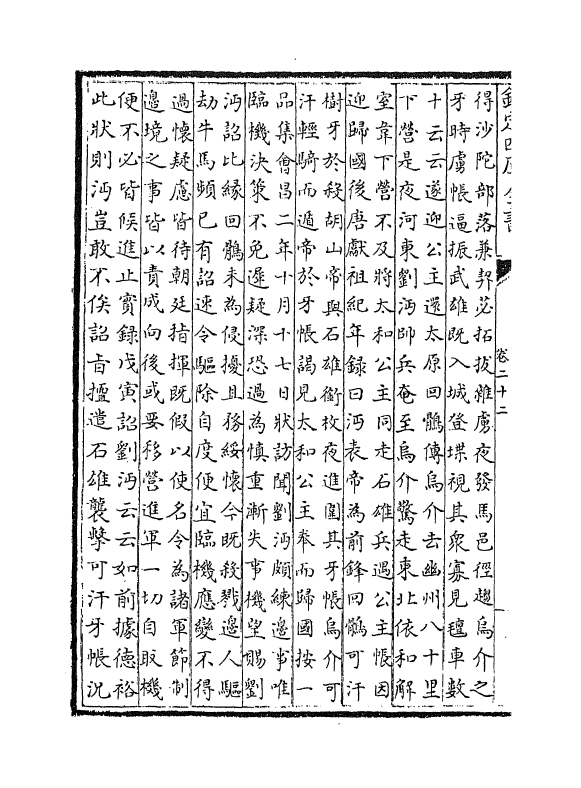 欽定四庫全書
卷二十二
得沙陀部落兼契苾拓拔雜虜夜發馬邑徑趨烏介之
牙時虜帳逼振武雄既入城登堞視其衆寡見氊車數
十云云遂迎公主還太原回鶻傳烏介去幽州八十里
下營是夜河東劉沔帥兵奄至烏介驚走東北依和解
室韋下營不及將太和公主同走石雄兵遇公主帳因
迎歸國後唐獻祖紀年録曰沔表帝為前鋒回鶻可汗
樹牙於殺胡山帝與石雄銜枚夜進圍其牙帳烏介可
汗輕騎而遁帝於牙帳謁見太和公主奉而歸國按一
品集會昌二年十月十七日狀訪聞劉沔頗練邊事唯
臨機決策不免遲疑深恐過為慎重漸失事機望賜劉
沔詔比緣回鶻未為侵擾且務綏懷今既殺戮邊人驅
劫牛馬頻已有詔速令驅除自度便宜臨機應變不得
過懷疑慮皆待朝廷指揮既假以使名令為諸軍節制
邊境之事皆以責成向後或要移營進軍一切自取機
便不必皆候進止實録戊寅詔劉沔云云如前據德裕
此狀則沔豈敢不俟詔旨擅遣石雄襲擊可汗牙帳況